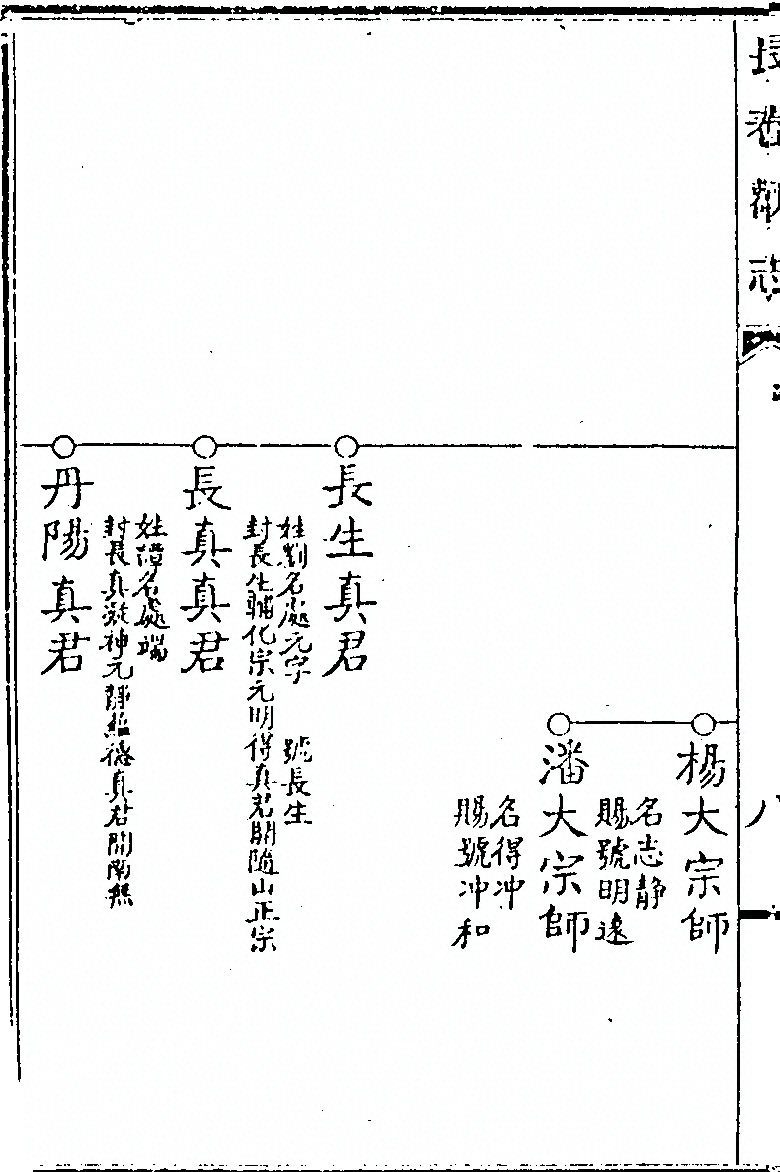 長春觀志
八
楊大宗師
名志靜
賜號明遠
潘大宗師
名得冲
賜號冲和
長生真君
姓劉名處元字　號長生
封長生輔化宗元明得真君開隨山正宗
長真真君
姓譚名處端
封長真凝神元靜蘊德真君開南無
丹陽真君